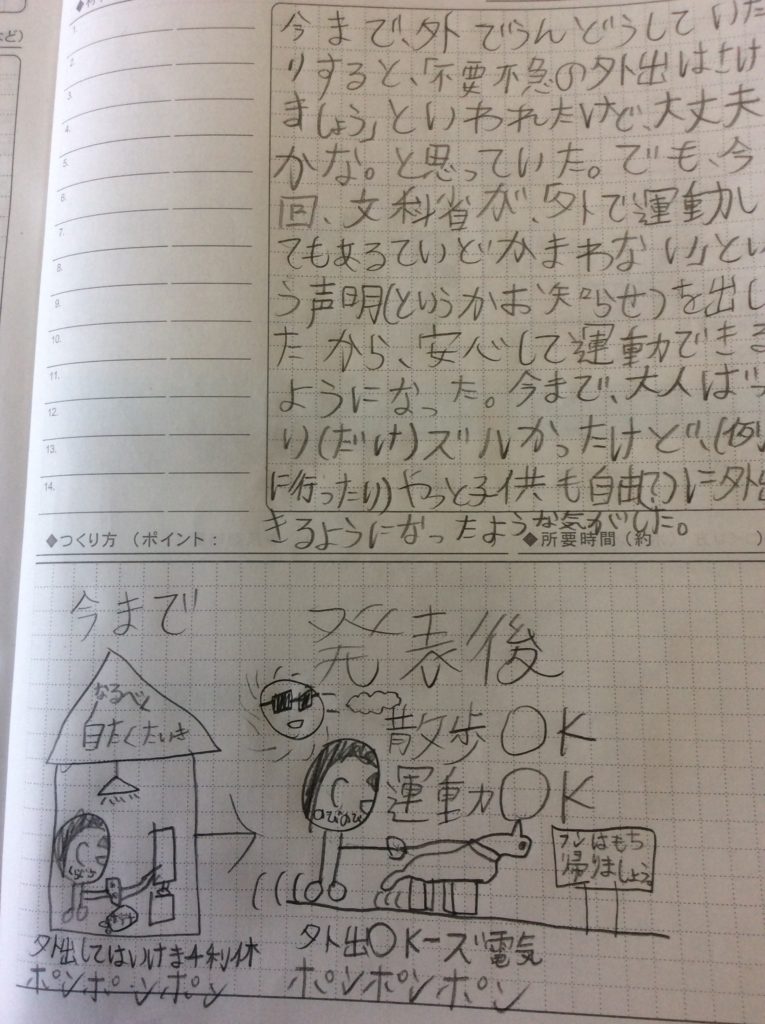 1.
2.
3.
4.
5.
6.
7.
8.
9.
10.
11.
12.
13.
14.
今まで、外でうんどうしていた
りすると、「不要不急の外出はさけ
ましょう」といわれたけど、大丈夫
かな。と思っていた。でも、今
回、文科省が、「外で運動し
てもあるていどかまわない」とい
う声明(というかお知らせ)を出し
たから、安心して運動できる
ようになった。今まで、大人ばっ
り(だけ)ズルかったけど、(例
に行ったり)やっと子供も自由(?)に外出
きるようになったような気がした。
◆つくり方(ポイント:
◆所要時間(約
)
今まで
なるべく
自たくたいき
外出してはいけま千利休
ポンポンポン
発表後
散歩OK
運動OK
のびのび
フンはもち
帰りましょう。
外出OKーズ電気
ポンポンポン